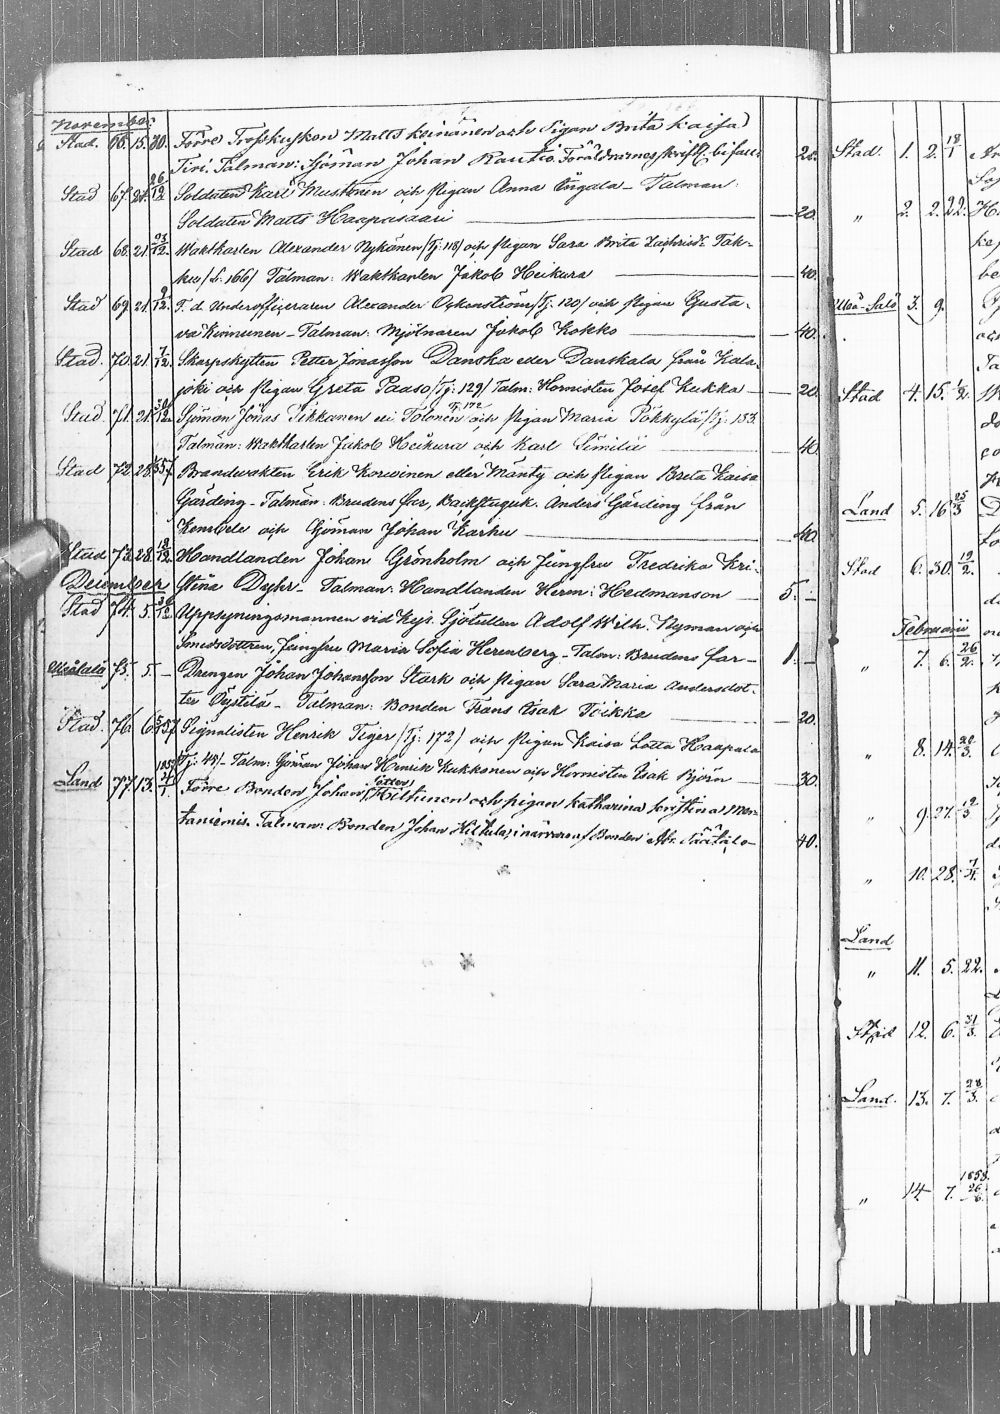 November
Stad. 66. 15. 30. Förre Trosskusken Matts Keinänen och Pigan Brita Kaisa
Tiri. Talman: Sjöman Johan Rautio. Föräldrarnes skriftl. bifall 20.
Stad 67. 21. 26/12 Soldaten Karl Mustonen och pigan Anna Talman:
Soldaten Matts Haapasaari — 20.
Stad 68. 21. 12. Waktkarlen Alexander Nykänen /Tj: 118/ och pigan Sara Brita Zachrisd. Tak-
ku /S. 166/ Talman: Waktkarlen Jakob Heikura — 40.
Stad 69. 21. 9/12. F. d. Underofficeraren Alexander Öhrnström /Tj: 120/ och pigan Gusta-
va Kinnunen — Talman: Mjölnaren Jakob Kokko — 40.
Stad. 70. 21. 7/12. Skarpskytten Peter Jonasson Danska eller Danskala från Kala-
joki och pigan Greta Paaso /Tj: 129/ Talm: Hornisten Josef Kukka — 20.
Stad. 71. 21. 12. Sjöman Jonas Tikkanen eli Tolonen Tj: 172 och pigan Maria Pökkylä /Tj: 183.
Talmän: Waktkarlen Jakob Heikura och Karl Similä — 40.
Stad 72. 28. Brandwakten Erik Korwinen eller Mänty och pigan Brita Kaisa
Gärding — Talmän: Brudens far, Backstuguk. Anders Gärding från
Kempele och Sjöman Johan Karhu — 40.
Stad 73. 28. 18/12. Handlanden Johan Grönholm och Jungfru Fredrika Kri-
December stina Dyhr — Talman: Handlanden Herm: Hedmanson — 5. —
Stad 74. 5. 12 Uppsyningsmannen vid Kejs. Sjötullen Adolf Wilh. Nyman och
Smedsdottren, Jungfru Maria Sofia Herenberg — Talm: Brudens far — 1. —
75. 5. — Drengen Johan Johansson Stark och pigan Sara Maria Andersdot-
ter Pystilä — Talman: Bonden Frans Isak Toikka — 20.
Stad. 76. 6. Signalisten Henrik Tiger /Tj: 172/ och pigan Kaisa Lotta Haapala
/Tj: 42/ — Talm: Sjöman Johan Henrik Kukkonen och Hornisten Isak Björn — 30.
Land 77. 13. 4/1. Förre Bonden Johan Hiltunen och pigan Katharina Kristina Mon-
taniemi. Talman: Bonden Johan Hiltula, i närvaro af Bonden Abr. — 40.
Stad. 1. 2. 18/1
„ 2. 2. 22.
Uleå-Salo 3. 9.
Stad 4. 15. 1/2.
Land 5. 16 25/3
Stad 6. 30. 19/2.
Februarii
„ 7. 6. 26/2.
„ 8. 14. 20/3.
„ 9. 27. 12/3
„ 10. 28. 7/4.
Land
„ 11. 5. 22.
Stad 12. 6. 31/3.
Land. 13. 7. 28/3.
„ 14. 7. 1858. 26/6.